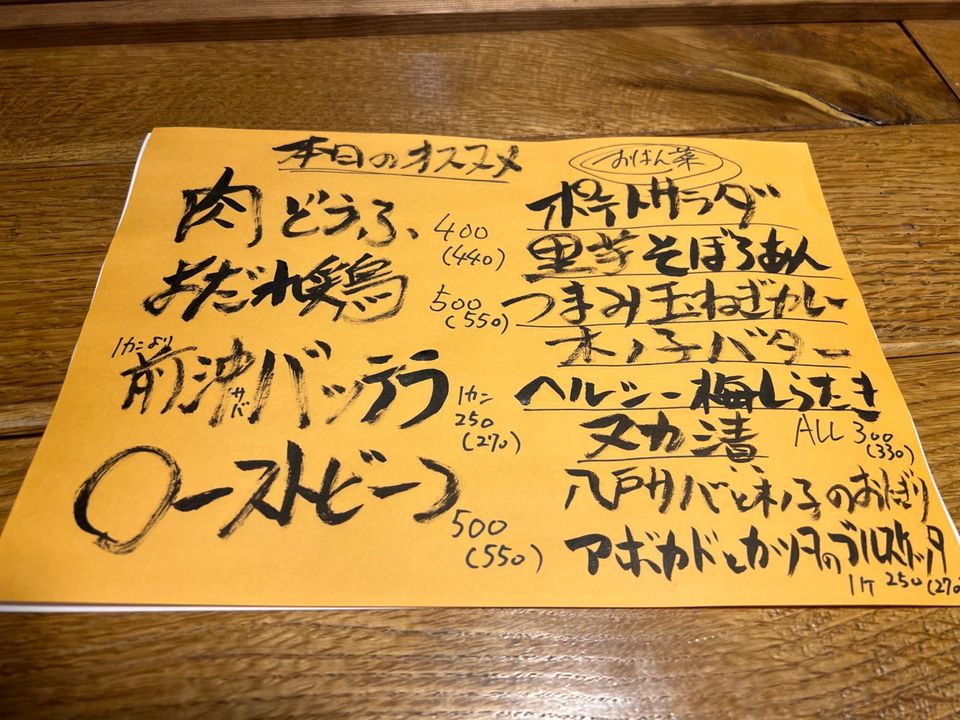 本日のオススメ
肉どうふ 400
(440)
よだれ鶏 500
(550)
1カンより
前沖サババッテラ 1カン
250
(270)
ローストビーフ 500
(550)
おばん菜
ポテトサラダ
里芋そぼろあん
つまみ玉ねぎカレー
木ノ子バター
ヘルシー梅しらたき
ヌカ漬 ALL 300
(330)
八戸サバと木ノ子のおにぎり
アボカドとカツオのブルスケッタ
1ケ 250 (270